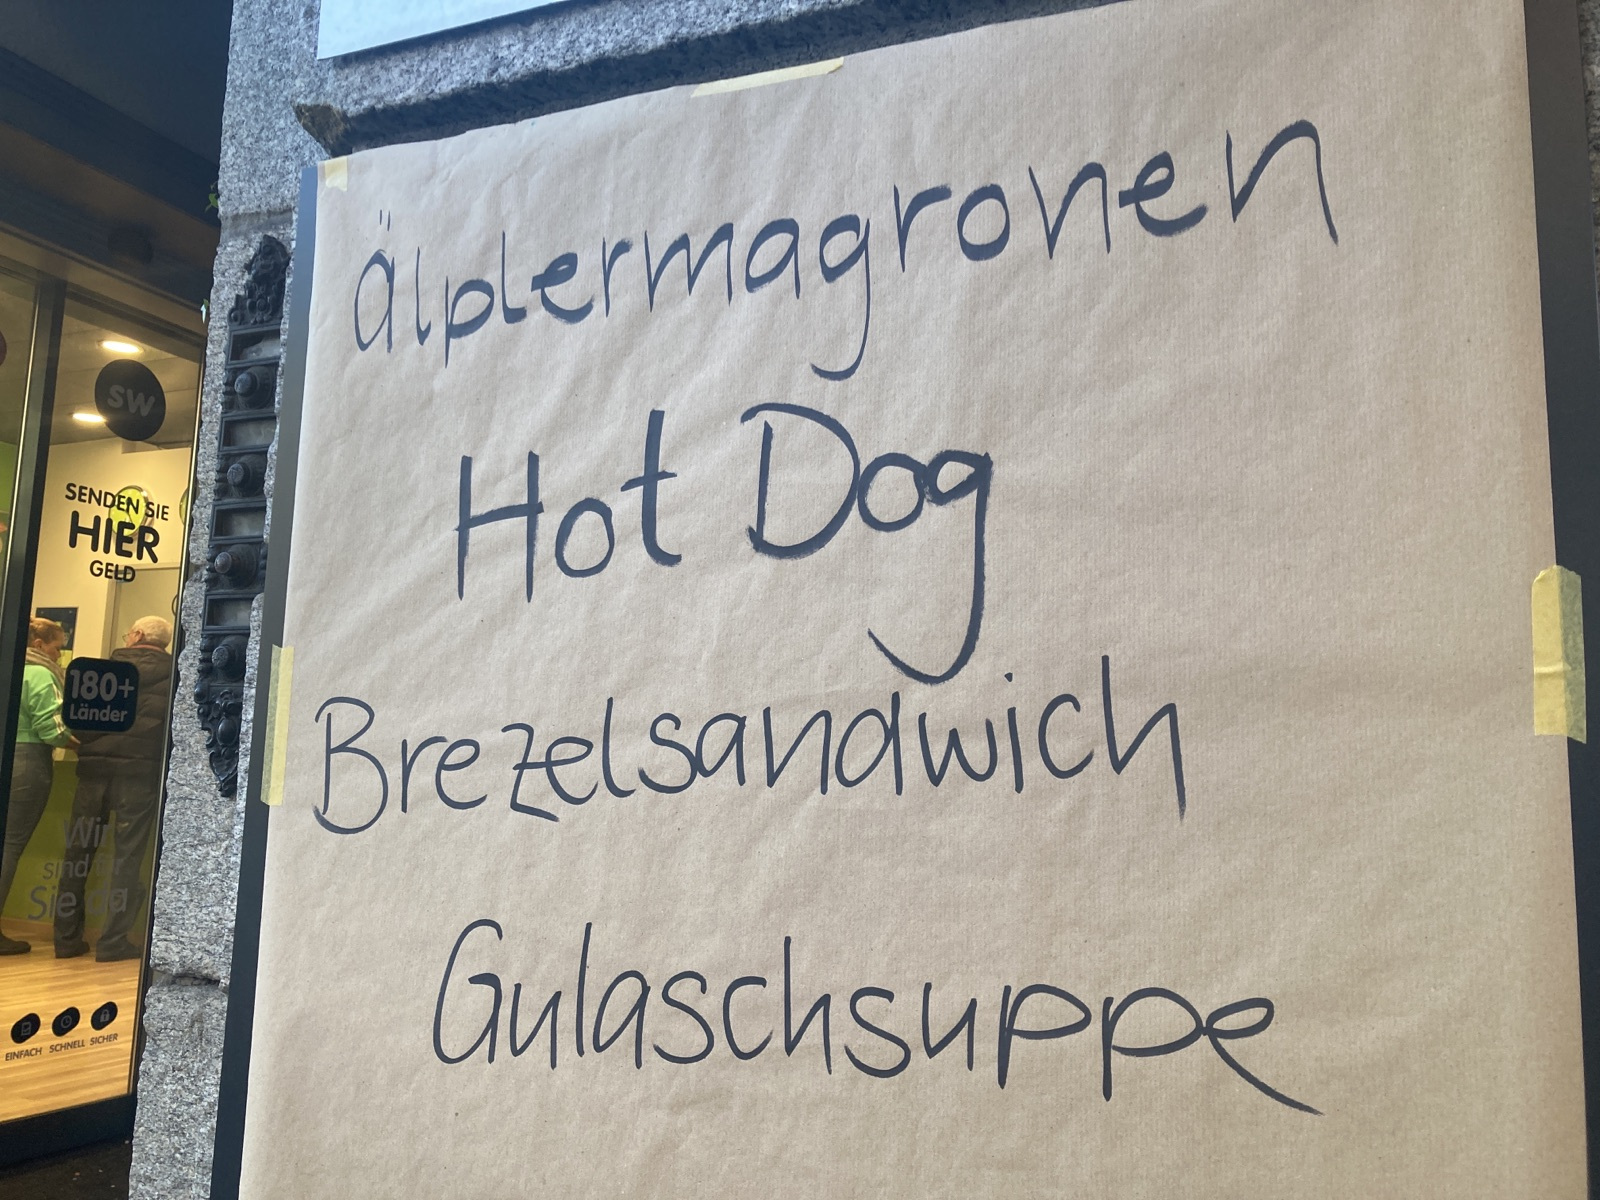 Älplermagronen
Hot Dog
Brezelsandwich
Gulaschsuppe
sw
SENDEN SIE
HIER
GELD
180+
Länder
Wir
sind für
Sie da
EINFACH SCHNELL SICHER